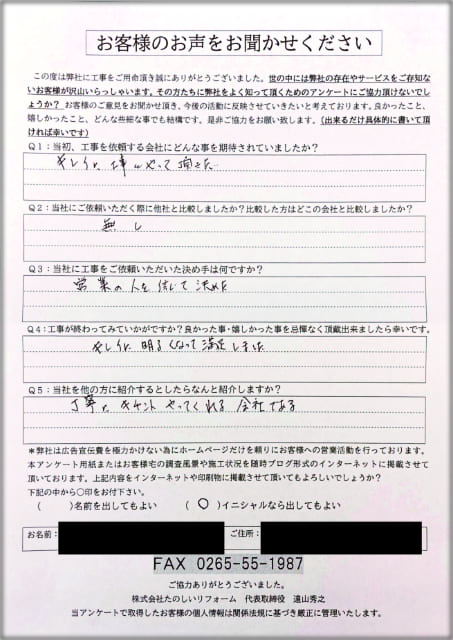 お客様のお声をお聞かせください
この度は弊社に工事をご用命頂き誠にありがとうございました。世の中には弊社の存在やサービスをご存知
ないお客様が沢山いらっしゃいます。その方たちに弊社をよく知って頂くためのアンケートにご協力頂けないでし
ょうか？お客様のご意見をお聞かせ頂き、今後の活動に反映させていきたいと考えております。良かったこと、
嬉しかったこと、どんな些細な事でも結構です。是非ご協力をお願い致します。（出来るだけ具体的に書いて頂
ければ幸いです）
Q1：当初、工事を依頼する会社にどんな事を期待されていましたか？
キレイに工事をやって頂きたい
Q2：当社にご依頼いただく際に他社と比較しましたか？比較した方はどこの会社と比較しましたか？
無し
Q3：当社に工事をご依頼いただいた決め手は何ですか？
営業の人を信じて決めた
Q4：工事が終わってみていかがですか？良かった事・嬉しかった事を忌憚なく頂戴出来ましたら幸いです。
キレイに明るくなって満足しました
Q5：当社を他の方に紹介するとしたらなんと紹介しますか？
丁寧にキチントやってくれる会社である
＊弊社は広告宣伝費を極力かけない為にホームページだけを頼りにお客様への営業活動を行っております。
本アンケート用紙またはお客様宅の調査風景や施工状況を随時ブログ形式のインターネットに掲載させて
頂いております。上記内容をインターネットや印刷物に掲載させて頂いてもよろしいでしょうか？
下記の中から〇印をお付下さい。
（　　）名前を出してもよい　（〇）イニシャルなら出してもよい
お名前：　ご住所：
FAX 0265-55-1987
ご協力ありがとうございました。
株式会社たのしいリフォーム　代表取締役　遠山秀之
当アンケートで取得したお客様の個人情報は関係法規に基づき厳正に管理いたします。